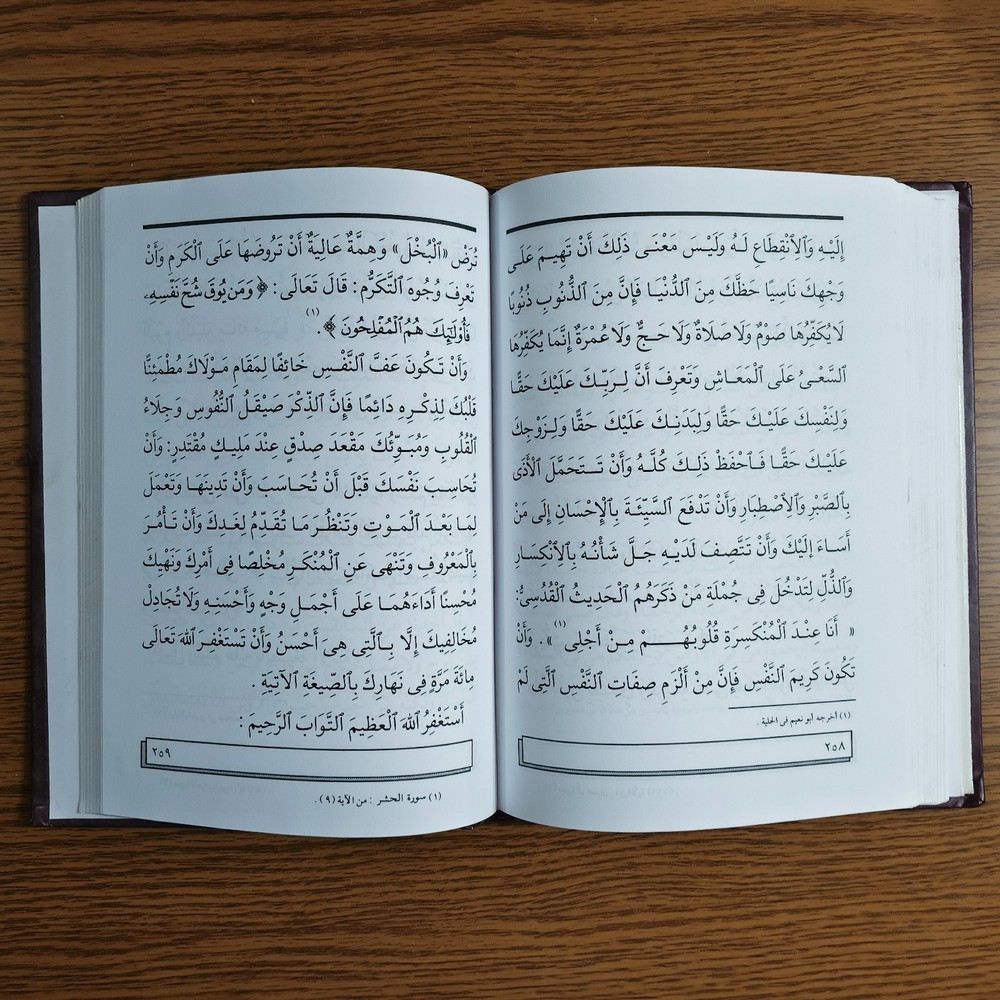 إِلَيْهِ وَٱلِٱنْقِطَاعِ لَهُ وَلَيْسَ مَعْنَى ذَلِكَ أَنْ تَهِيمَ عَلَى
وَجْهِكَ نَاسِيًا حَظَّكَ مِنَ ٱلدُّنْيَا فَإِنَّ مِنَ ٱلذُّنُوبِ ذُنُوبًا
لَا يُكَفِّرُهَا صَوْمٌ وَلَا صَلَاةٌ وَلَا حَجٌّ وَلَا عُمْرَةٌ إِنَّمَا يُكَفِّرُهَا
ٱلسَّعْىُ عَلَى ٱلْمَعَاشِ وَتَعْرِفَ أَنَّ لِرَبِّكَ عَلَيْكَ حَقًّا
وَلِنَفْسِكَ عَلَيْكَ حَقًّا وَلِبَدَنِكَ عَلَيْكَ حَقًّا وَلِزَوْجِكَ
عَلَيْكَ حَقًّا فَٱحْفَظْ ذَلِكَ كُلَّهُ وَأَنْ تَتَحَمَّلَ ٱلْأَذَى
بِٱلصَّبْرِ وَٱلِٱصْطِبَارِ وَأَنْ تَدْفَعَ ٱلسَّيِّئَةَ بِٱلْإِحْسَانِ إِلَى مَنْ
أَسَاءَ إِلَيْكَ وَأَنْ تَتَّصِفَ لَدَيْهِ جَلَّ شَأْنُهُ بِٱلِٱنْكِسَارِ
وَٱلذُّلِّ لِتَدْخُلَ فِى جُمْلَةِ مَنْ ذَكَرَهُمُ ٱلْحَدِيثُ ٱلْقُدُسِىُّ:
« أَنَا عِنْدَ ٱلْمُنْكَسِرَةِ قُلُوبُهُمْ مِنْ أَجْلِى (١) ». وَأَنْ
تَكُونَ كَرِيمَ ٱلنَّفْسِ فَإِنَّ مِنْ أَلْزَمِ صِفَاتِ ٱلنَّفْسِ ٱلَّتِى لَمْ
(١) أخرجه أبو نعيم فى الحلية .
٢٥٨
تُرَضْ «ٱلْبُخْلَ» وَهِمَّةٌ عَالِيَةٌ أَنْ تَرُوضَهَا عَلَى ٱلْكَرَمِ وَأَنْ
تَعْرِفَ وُجُوهَ ٱلتَّكَرُّمِ: قَالَ تَعَالَى: ﴿ وَمَن يُوقَ شُحَّ نَفْسِهِۦ
فَأُو۟لَٰٓئِكَ هُمُ ٱلْمُفْلِحُونَ ﴾.(١)
وَأَنْ تَكُونَ عَفَّ ٱلنَّفْسِ خَائِفًا لِمَقَامِ مَوْلَاكَ مُطْمَئِنًّا
قَلْبُكَ لِذِكْرِهِ دَائِمًا فَإِنَّ ٱلذِّكْرَ صَيْقَلُ ٱلنُّفُوسِ وَجِلَاءُ
ٱلْقُلُوبِ وَمُبَوِّئُكَ مَقْعَدَ صِدْقٍ عِنْدَ مَلِيكٍ مُقْتَدِرٍ: وَأَنْ
تُحَاسِبَ نَفْسَكَ قَبْلَ أَنْ تُحَاسَبَ وَأَنْ تَدِينَهَا وَتَعْمَلَ
لِمَا بَعْدَ ٱلْمَوْتِ وَتَنْظُرَ مَا تُقَدِّمُ لِغَدِكَ وَأَنْ تَأْمُرَ
بِٱلْمَعْرُوفِ وَتَنْهَى عَنِ ٱلْمُنْكَرِ مُخْلِصًا فِى أَمْرِكَ وَنَهْيِكَ
مُحْسِنًا أَدَاءَهُمَا عَلَى أَجْمَلِ وَجْهٍ وَأَحْسَنِهِ وَلَا تُجَادِلْ
مُخَالِفِيكَ إِلَّا بِٱلَّتِى هِىَ أَحْسَنُ وَأَنْ تَسْتَغْفِرَ ٱللهَ تَعَالَى
مِائَةَ مَرَّةٍ فِى نَهَارِكَ بِٱلصِّيغَةِ ٱلْآتِيَةِ .
أَسْتَغْفِرُ ٱللهَ ٱلْعَظِيمَ ٱلتَّوَابَ ٱلرَّحِيمَ :
٢٥٩
(١) سورة الحشر : من الآية (٩).